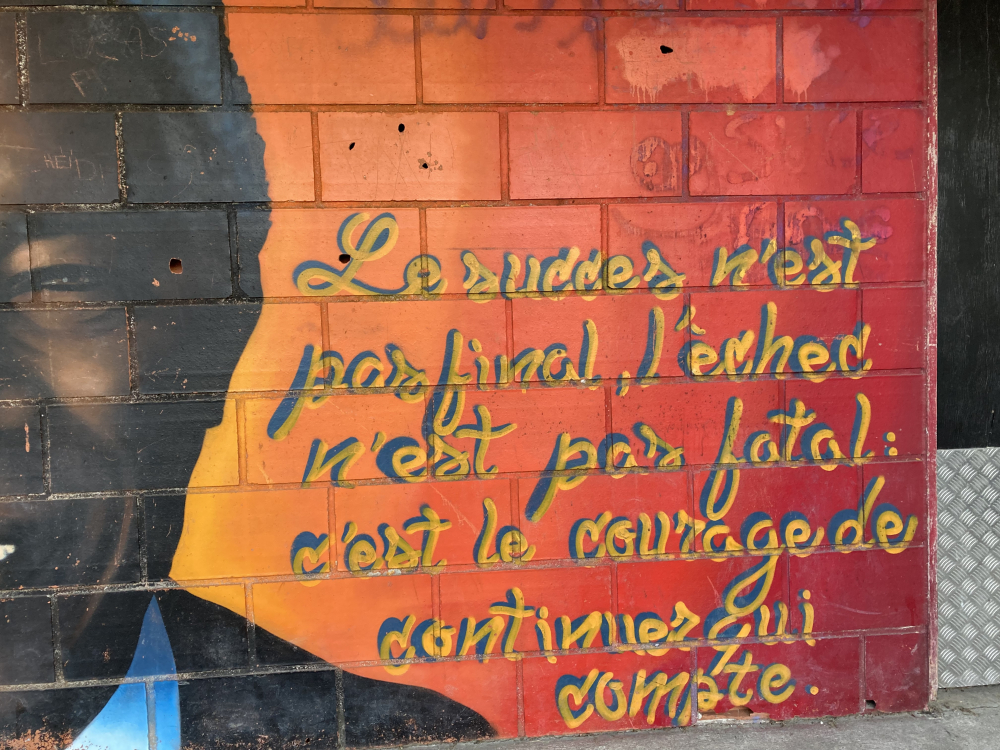 Le succes n'est
pas final, l'êchec
n'est pas fatal:
c'est le courage de
continuer qui
compte.